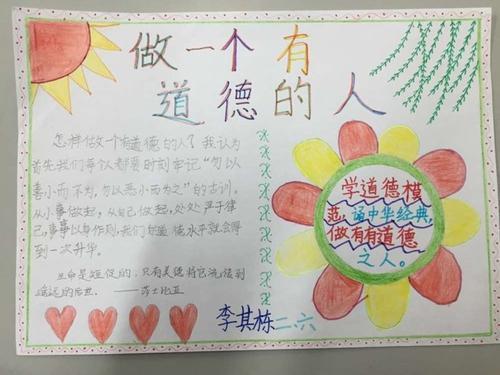 做一个有
道德的人
怎样做一个有道德的人？我认为
首先我们每个人都要时刻牢记“勿以
善小而不为，勿以恶小而为之”的古训，
从小事做起，从自己做起，处处严于律
己，事事以身作则，我们的道德水平就会得
到一次升华。
生命是短促的，只有美德将它流传到
遥远的后世。
——莎士比亚
学道德模
范，诵中华经典，
做有有道德
之人。
李其栋二.六